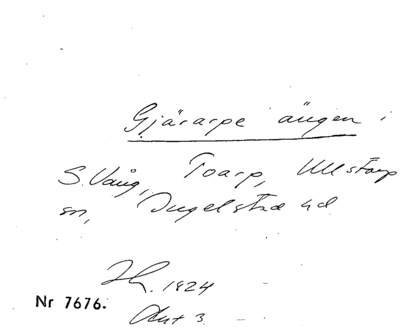 Gjärarpe ängen i
S. Vång, Toarp, Ullstorp
sn, Ingelstad hd
1924
Nr 7676.